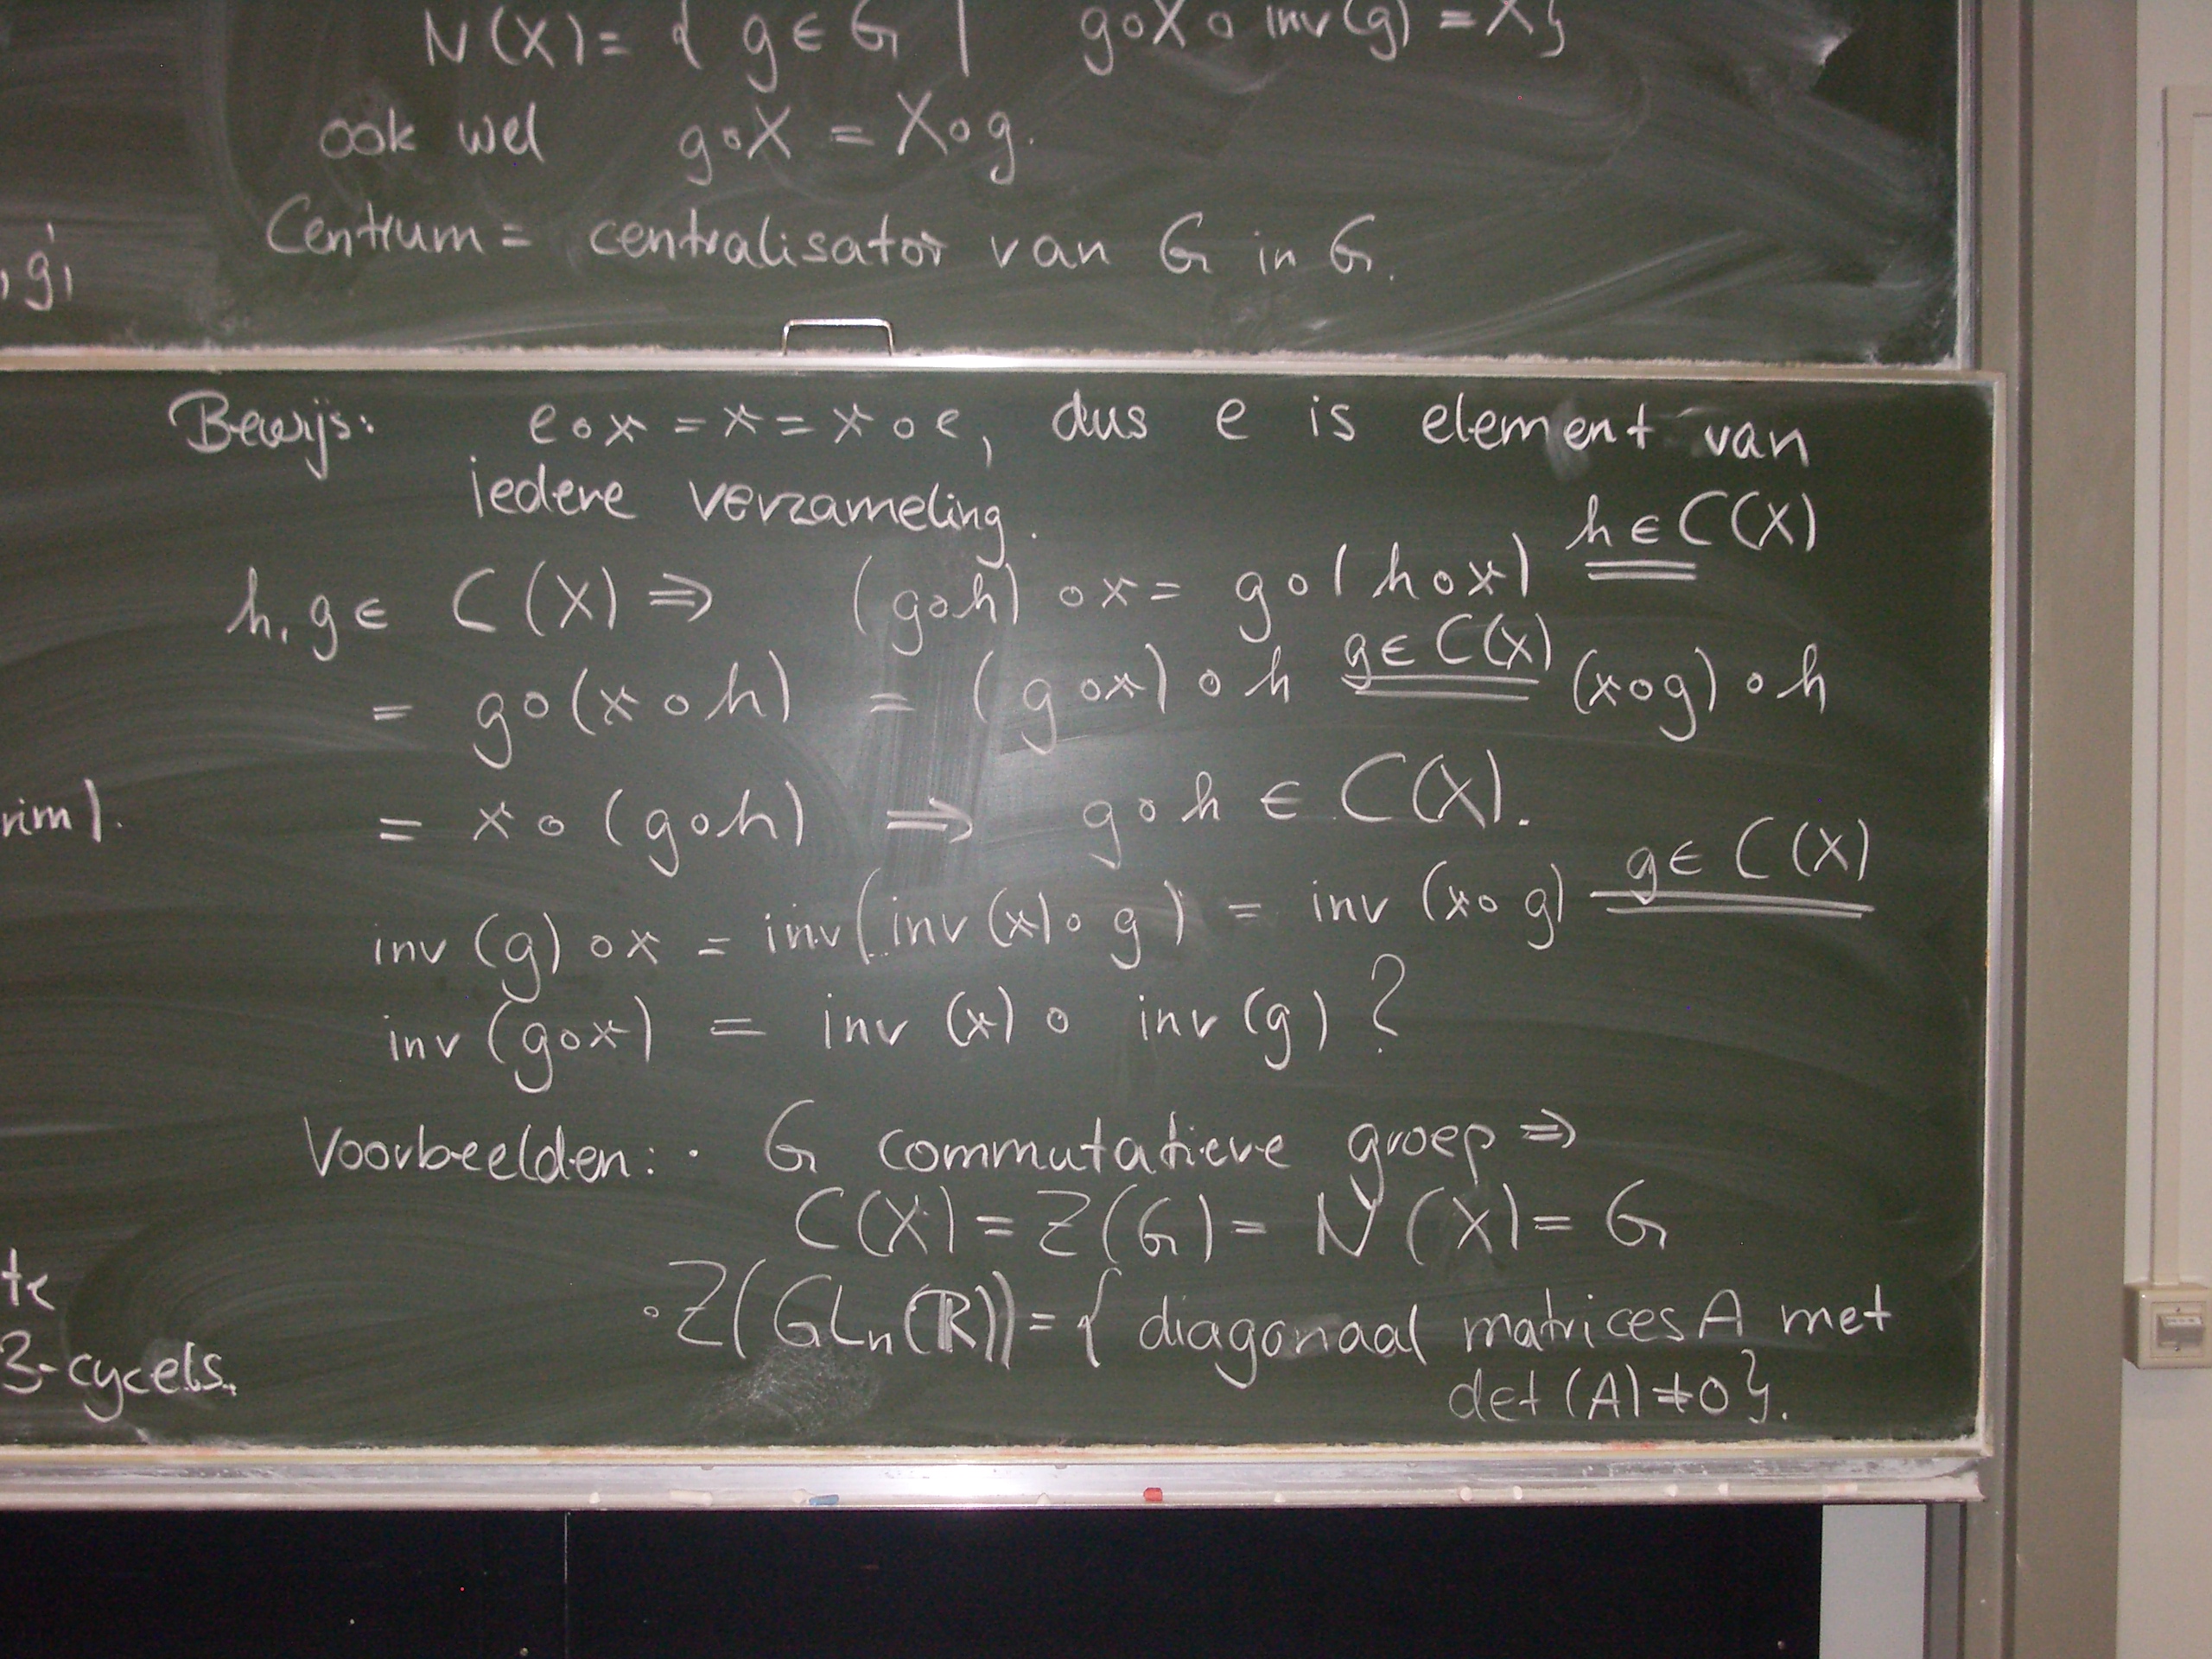 N(X) = { g ∈ G | g∘X∘inv(g) = X}
ook wel g∘X = X∘g.
Centrum = centralisator van G in G.
Bewijs: e∘x = x = x∘e, dus e is element van
iedere verzameling.
h, g ∈ C(X) ⇒ (g∘h)∘x = g∘(h∘x) h∈C(X)
= g∘(x∘h) = (g∘x)∘h g∈C(X) (x∘g)∘h
= x∘(g∘h) ⇒ g∘h ∈ C(X).
inv(g)∘x = inv(inv(x)∘g) = inv(x∘g) g∈C(X)
inv(g∘x) = inv(x)∘inv(g) ?
Voorbeelden: · G commutatieve groep ⇒
C(X) = Z(G) = N(X) = G
· Z(GLn(R)) = { diagonaal matrices A met
det(A)≠0}.
3-cycels.